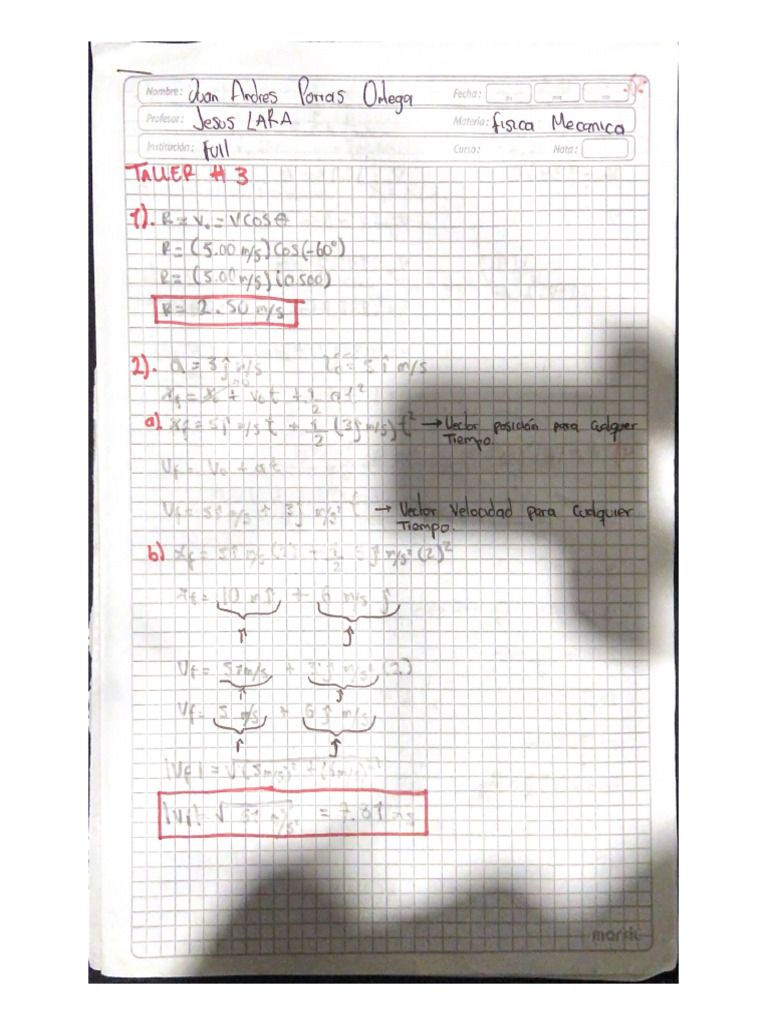 Nombre: Juan Andres Porras Ortega Fecha:
Profesor: Jesus LARA Materia: fisica Mecanica
Institución: Full Curso: Nota:
TALLER # 3
1). R = V₀ = V cos θ
R = (5.00 m/s) Cos (-60°)
R = (5.00 m/s) (0.500)
R = 2.50 m/s
2). a = 3ĵ m/s = 5 î m/s
+ V₀t + 1/2 at²
a) Xf = 5î m/s t + 1/2 (3ĵ m/s) t² → Vector posición para cualquer
Tiempo.
Vf = V₀ + at
Vf = 5î m/s + 3ĵ m/s² t → Vector Velocidad para Cualquier
Tiempo.
b) Xf = 5î m/s (2) + 1/2 3ĵ m/s² (2)²
Xf = 10 m î + 6 m/s ĵ
î ĵ
Vf = 5î m/s + 3ĵ m/s² (2)
î ĵ
Vf = 5 m/s + 6 ĵ m/s
î ĵ
|Vf| = √(5 m/s)² +
|Vf| = √ 61 m²/s² = 7.81 m/s